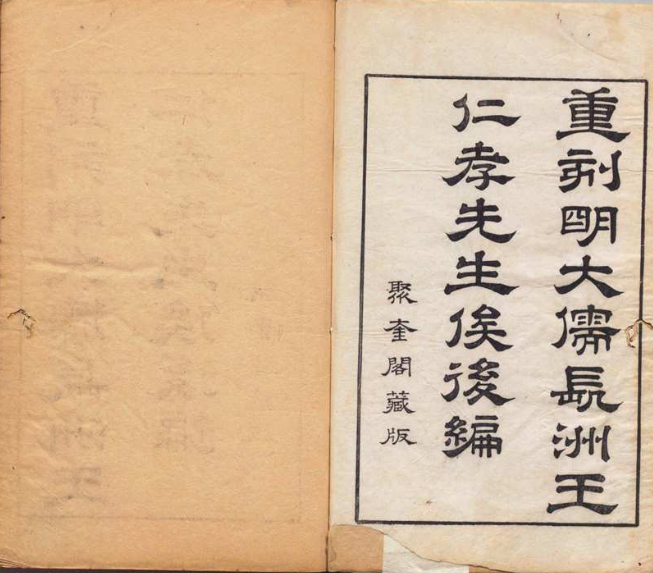 重刻明大儒長洲王
仁孝先生俟後編
聚奎閣藏版